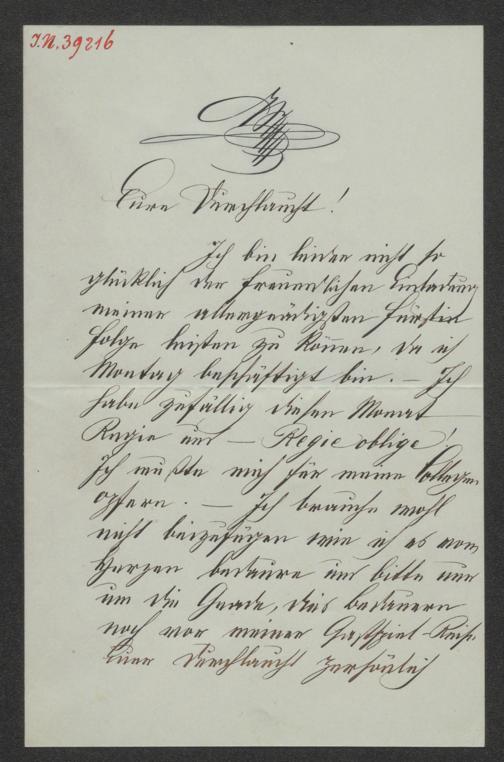 I.N. 39216
Eure Durchlaucht!
Ich bin leider nicht so
glücklich der freundlichen Einladung
meiner allergnädigsten Fürstin
folge leisten zu können, da ich
Montag beschäftigt bin. – Ich
habe zufällig diesen Monat
Regie und – Regie oblige!
Ich mußte mich für meine Collegen
opfern. – Ich brauche wohl
nicht beizufügen wie ich es vom
Herzen bedaure und bitte nur
um die Gnade, dies bedauern
noch vor meiner Gastspiel-Reise
Euer Durchlaucht persönlich